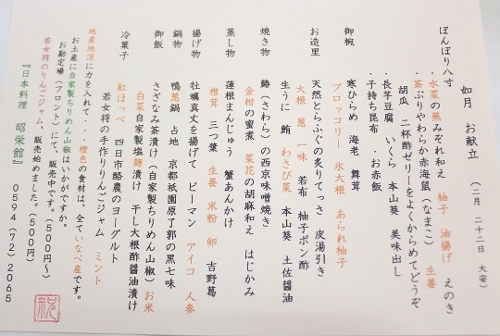 如月　お献立　（二月　二十二日　大安）
ぼんぼり八寸
・水菜の蕪みぞれ和え　柚子　油揚げ　えのき
・茶ぶりやわらか赤海鼠（なまこ）　生姜
胡瓜　二杯酢ゼリーをよくからめてどうぞ
・長芋豆腐　いくら　本山葵　美味出し
・子持ち昆布　・お赤飯
御椀　寒ひらめ　海老　舞茸
ブロッコリー　氷大根　あられ柚子
お造里　天然とらふぐの炙りてっさ　皮湯引き
大根　葱　一味　若布　柚子ポン酢
生うに　鮪　わさび菜　本山葵　土佐醤油
焼き物　鰆（さわら）の西京味噌焼き
金柑の蜜煮　菜花の胡麻和え　はじかみ
蒸し物　蓮根まんじゅう　蟹あんかけ
椎茸　三つ葉　生姜　米粉　卵　吉野葛
揚げ物　牡蠣真丈を揚げて　ピーマン　アイコ　人参
鍋物　鴨葱鍋　占地　京都祇園原了郭の黒七味
御飯　さざなみ茶漬け（自家製ちりめん山椒）お米
白菜自家製塩麹漬け　干し大根酢醤油漬け
冷菓子　紅ほっぺ　四日市酪農のヨーグルト
若女将の手作りりんごジャム　ミント
地産地消に力を入れて・・・橙色の素材は、全ていなべ産です。
お土産に自家製ちりめん山椒はいかがですか。
お勘定場（フロント）にて、販売中です。（５００円～）
若女将のりんごジャム、販売始めました。（５００円）
『日本料理　昭栄館』　０５９４（７２）２０６５
祝